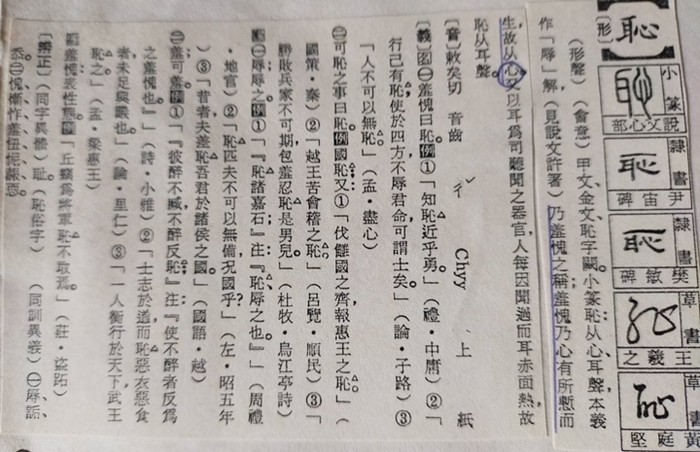 恥
小篆 說文心部
隸書 尹宙碑
隸書 樊敏碑
草書 王羲之
草書 黃庭堅
【形】
(形聲)(會意)甲文、金文、恥字闕。小篆恥从心、耳聲,本義
作「辱」解,(見說文許箸)乃羞愧之稱;羞愧乃心有所慙而
生,故从心;又以耳爲司聽聞之器官,人每因聞過而耳赤面熱,故
恥从耳聲。
【音】敕矣切 音齒 ㄔˇ Chyy 上 紙
【義】名㊀羞愧曰恥例①「知恥近乎勇。」(禮・中庸)②「
行己有恥,使於四方不辱君命,可謂士矣。」(論・子路)③
「人不可以無恥。」(孟・盡心)
㊁可恥之事曰恥例國恥又①「伐讎國之齊,報惠王之恥」(
國策・秦)②「越王苦會稽之恥」(呂覽・順民)③「
勝敗兵家不可期,包羞忍恥是男兒」(杜牧・烏江亭詩)
動㊀辱辱之例①「『恥諸嘉石』注『恥,辱之也。』」(周禮
・地官)②「恥匹夫不可以無備,況國乎?」(左・昭五年
)③「昔者夫差恥吾君於諸侯之國」(國語・越)
㊁羞可羞例①「『彼醉不臧,不醉反恥』注『使不醉者反爲
之羞愧也』」(詩・小雅)②「士志於道,而恥惡衣惡食
者,未足與議也。」(論・里仁)③「一人衡行於天下,武王
恥之」(孟・梁惠王)
羞愧表性態例「丘竊爲將軍恥不取焉。」(莊・盜跖)
【辨正】(同字異體)耻(恥俗字)(同訓異義)㊀辱、詬、
忝㊁愧、慚、怍、羞、忸怩